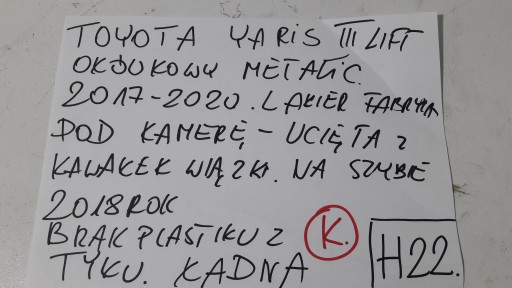 TOYOTA YARIS III LIFT
OKÒUKOWY METALIC.
2017-2020. LAKIER FABRYKA
POD KAMERĘ - UCIĘTA Z
KAWAŁEK WIĄZKI. NA SZYBIE
2018 ROK
BRAK PLASTIKU Z K.
TYŁU. ŁADNA H22.